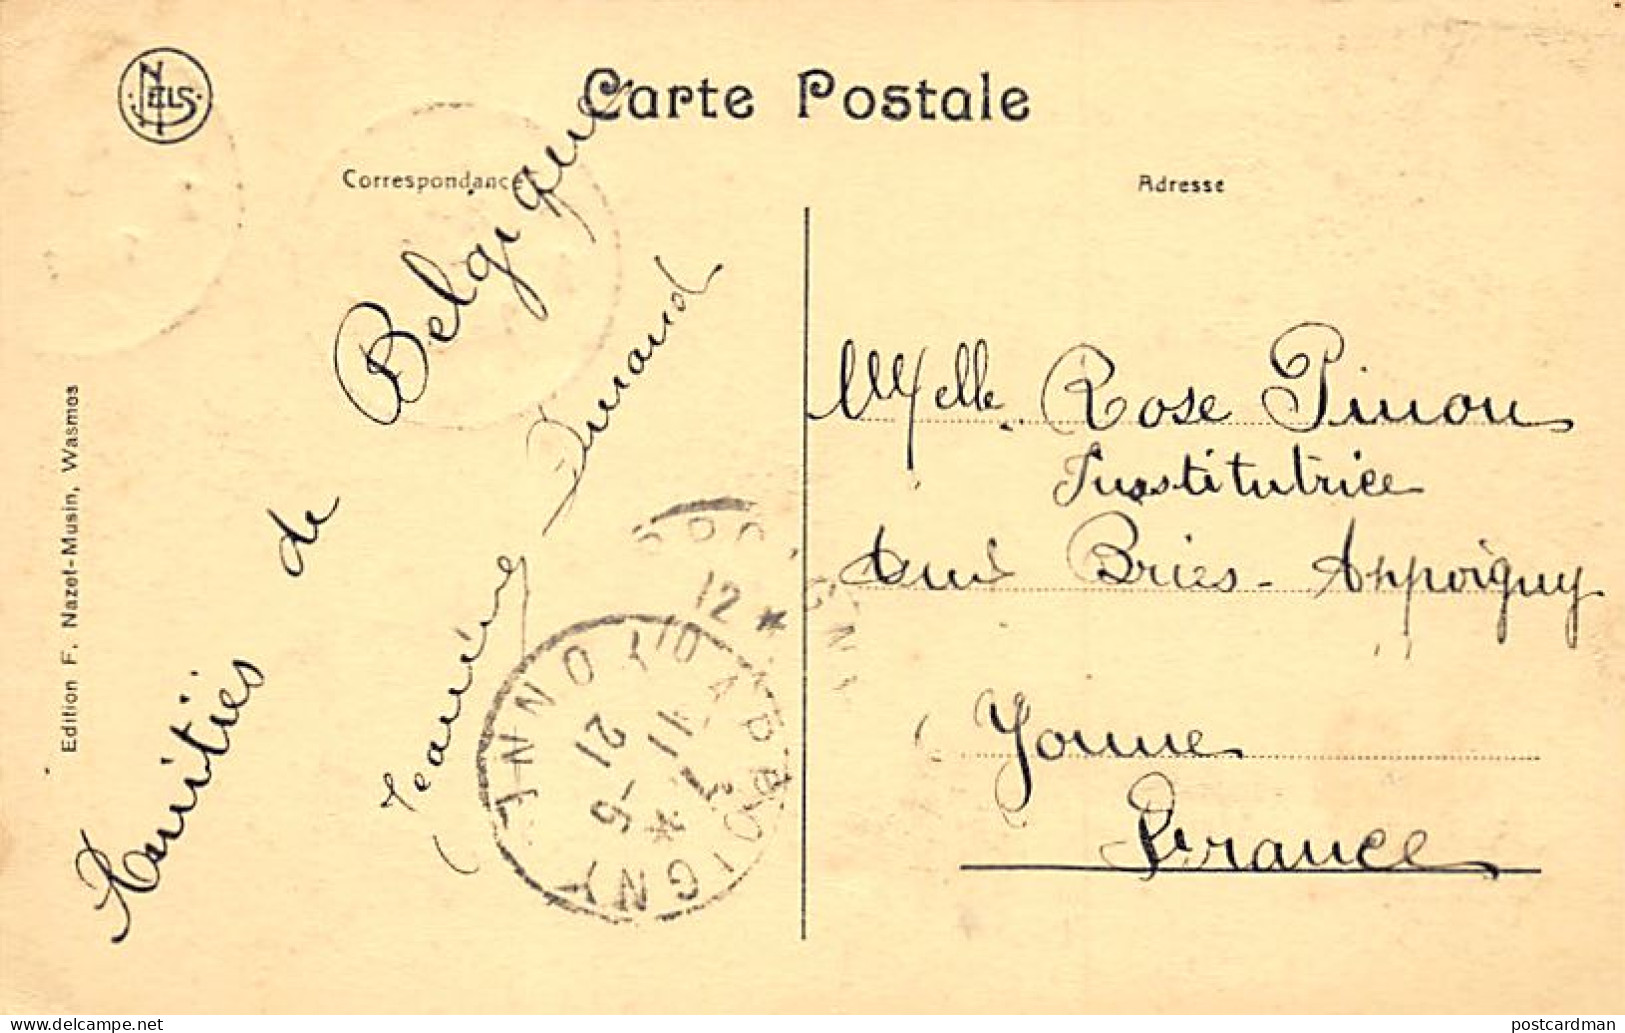 NELS
Carte Postale
Correspondance
Adresse
Edition F. Nazet-Musin, Wasmes
Amitiés de Belgique
Jeanine Durand
Melle Rose Pinon
Institutrice
Bries - Appoigny
Yonne
France
APPOIGNY YONNE
11
21 -5
12 *
delcampe.net
postcardman